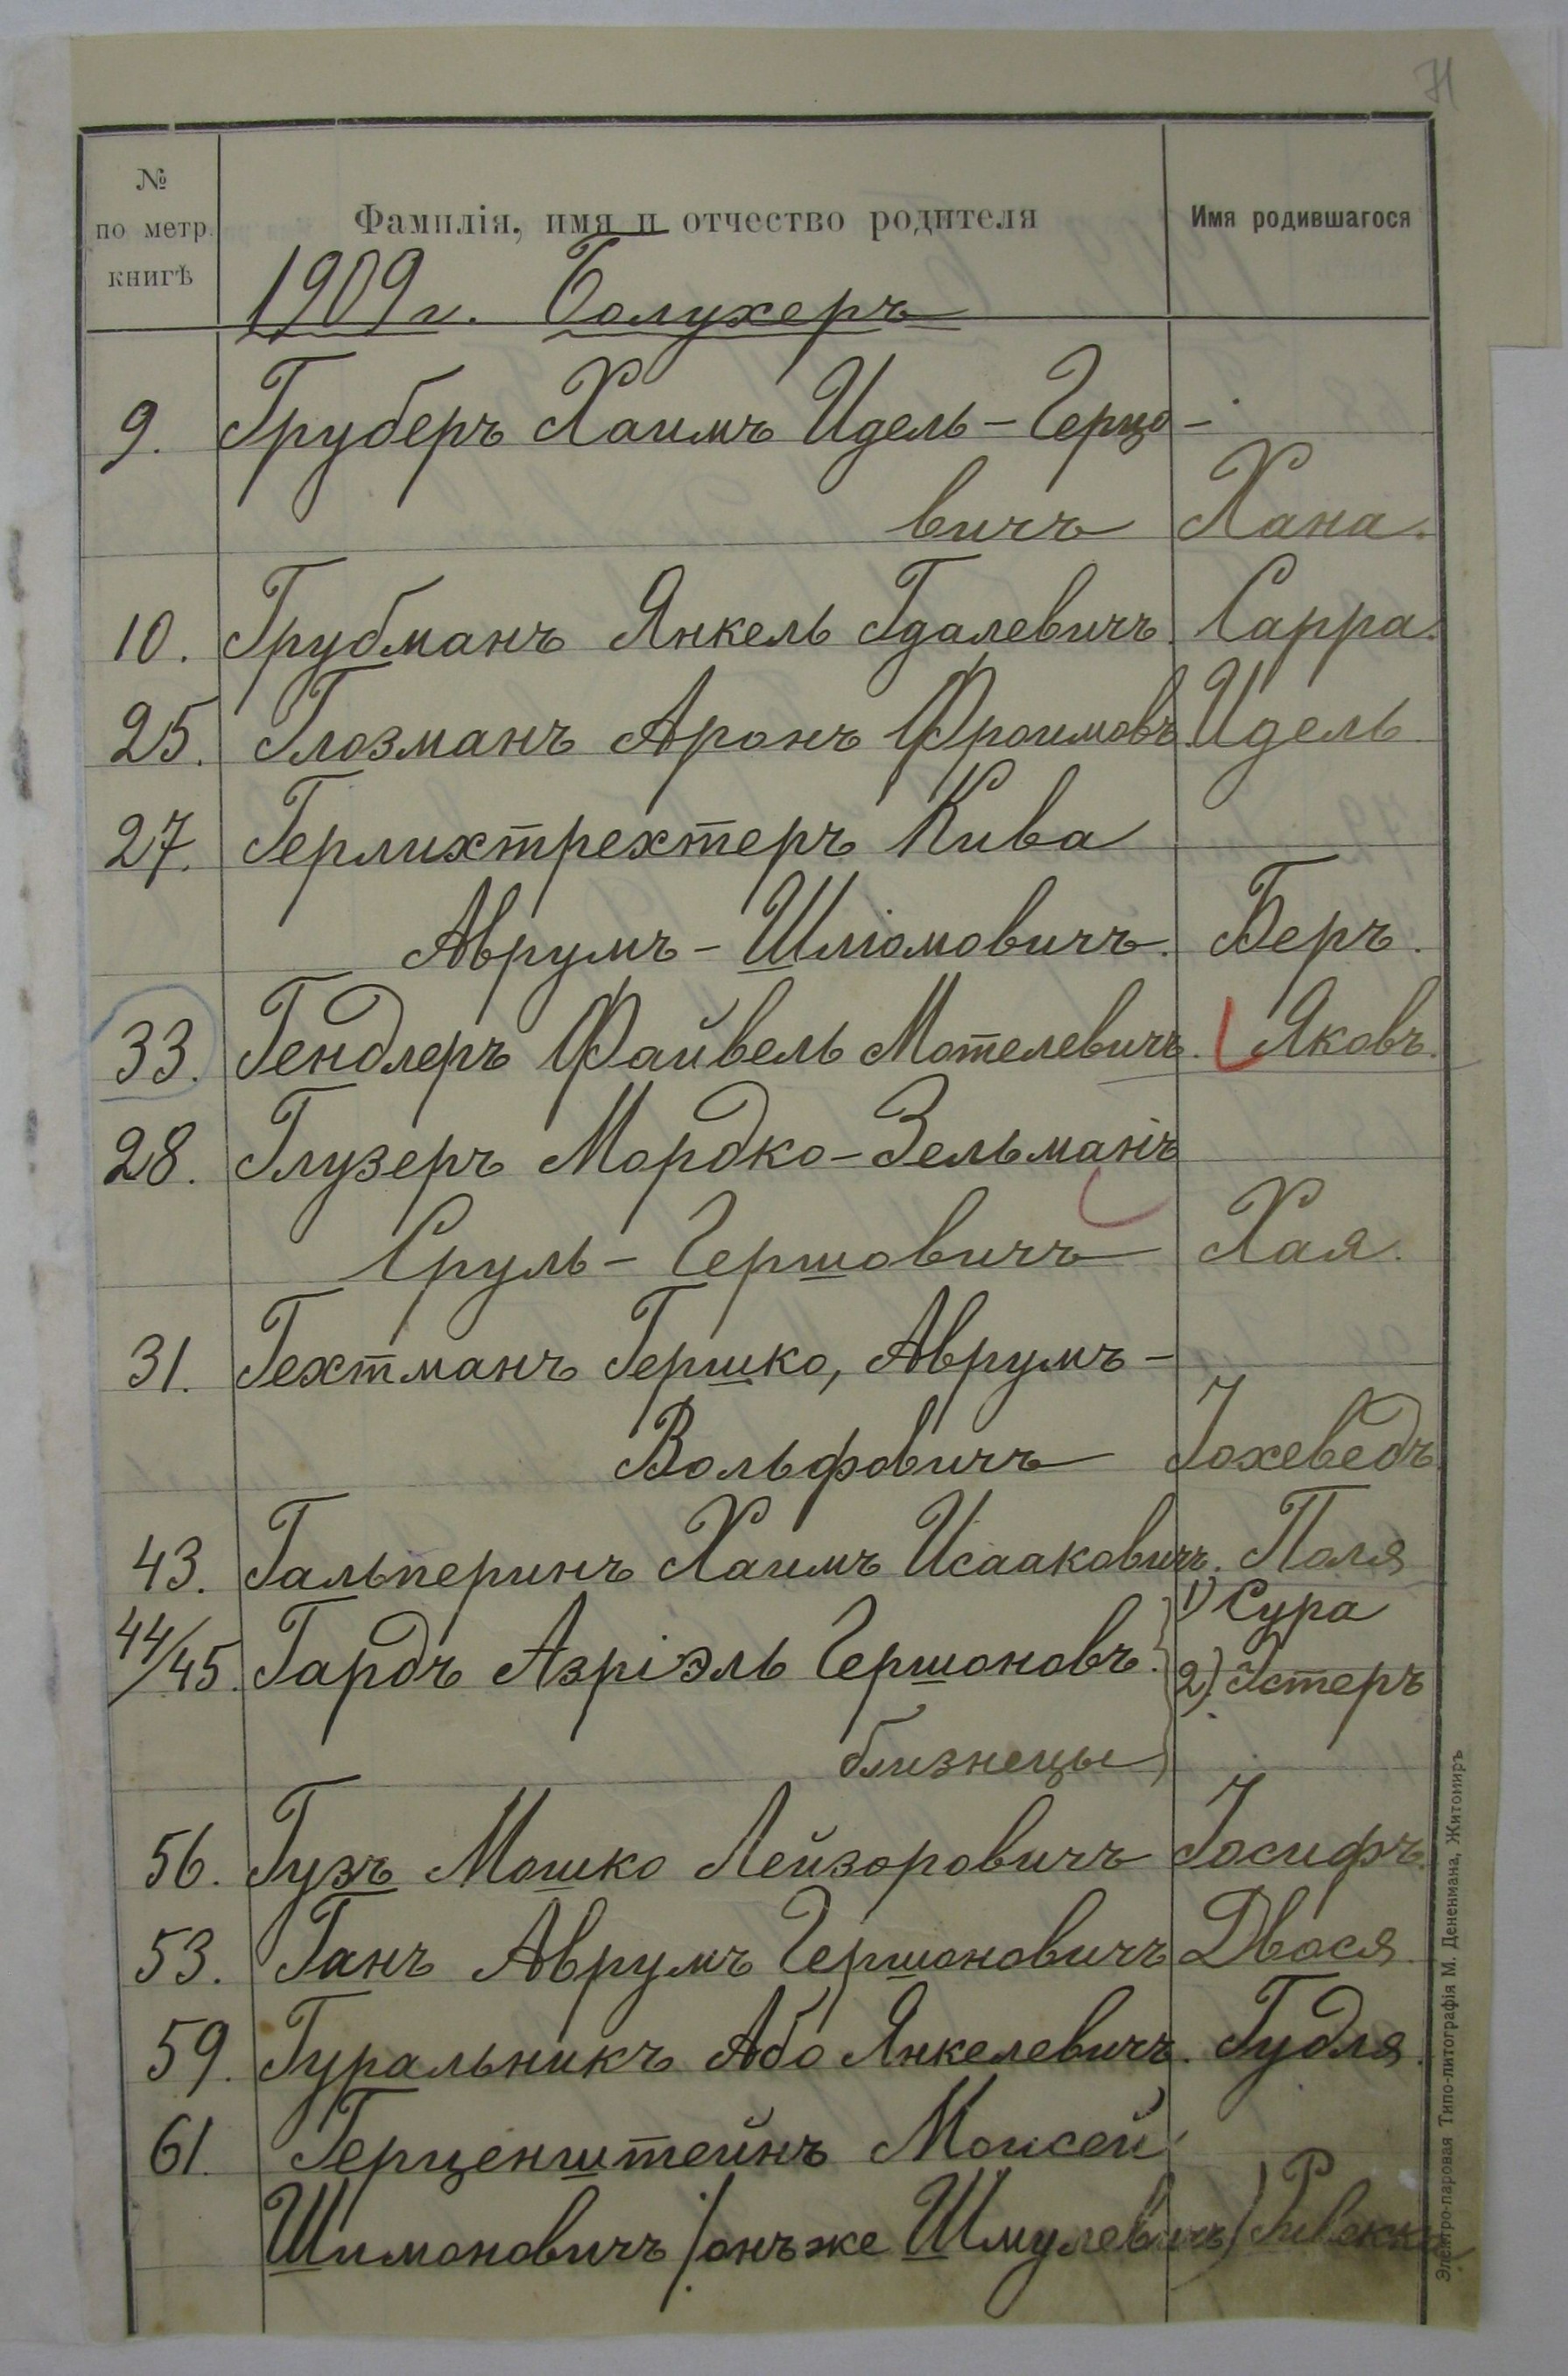 №
по метр.
книгѣ
Фамилія, имя и отчество родителя
Имя родившагося
1909 г.
9. Груберъ Хаимъ Идель-Герцо-
вичъ Хана.
10. Грубманъ Янкель Гдалевичъ. Сарра.
25. Глозманъ Аронъ Фроимовъ. Идель
27. Герлихтрехтеръ Кива
Аврумъ-Шліомовичъ. Беръ.
33. Гендлеръ Файвель Мотелевичъ. Яковъ.
28. Глузеръ Мордко-Зельманъ
Сруль-Гершовичъ Хая.
31. Гехтманъ Гершко, Аврумъ-
Вольфовичъ Іохеведъ
43. Гальперинъ Хаимъ Исааковичъ. Поля
44/45. Гардъ Азріэль Гершоновъ. 1) Сура
2) Эстеръ
близнецы
56. Гузъ Мошко Лейзоровичъ Іосифъ.
53. Ганъ Аврумъ Гершоновичъ Двося.
59. Гуральникъ Або Янкелевичъ. Гудля.
61. Герценштейнъ Моисей
Шимоновичъ /онъ же Шмулевичъ/ Ривекка
Электро-паровая Типо-литографія М. Дененмана, Житомиръ